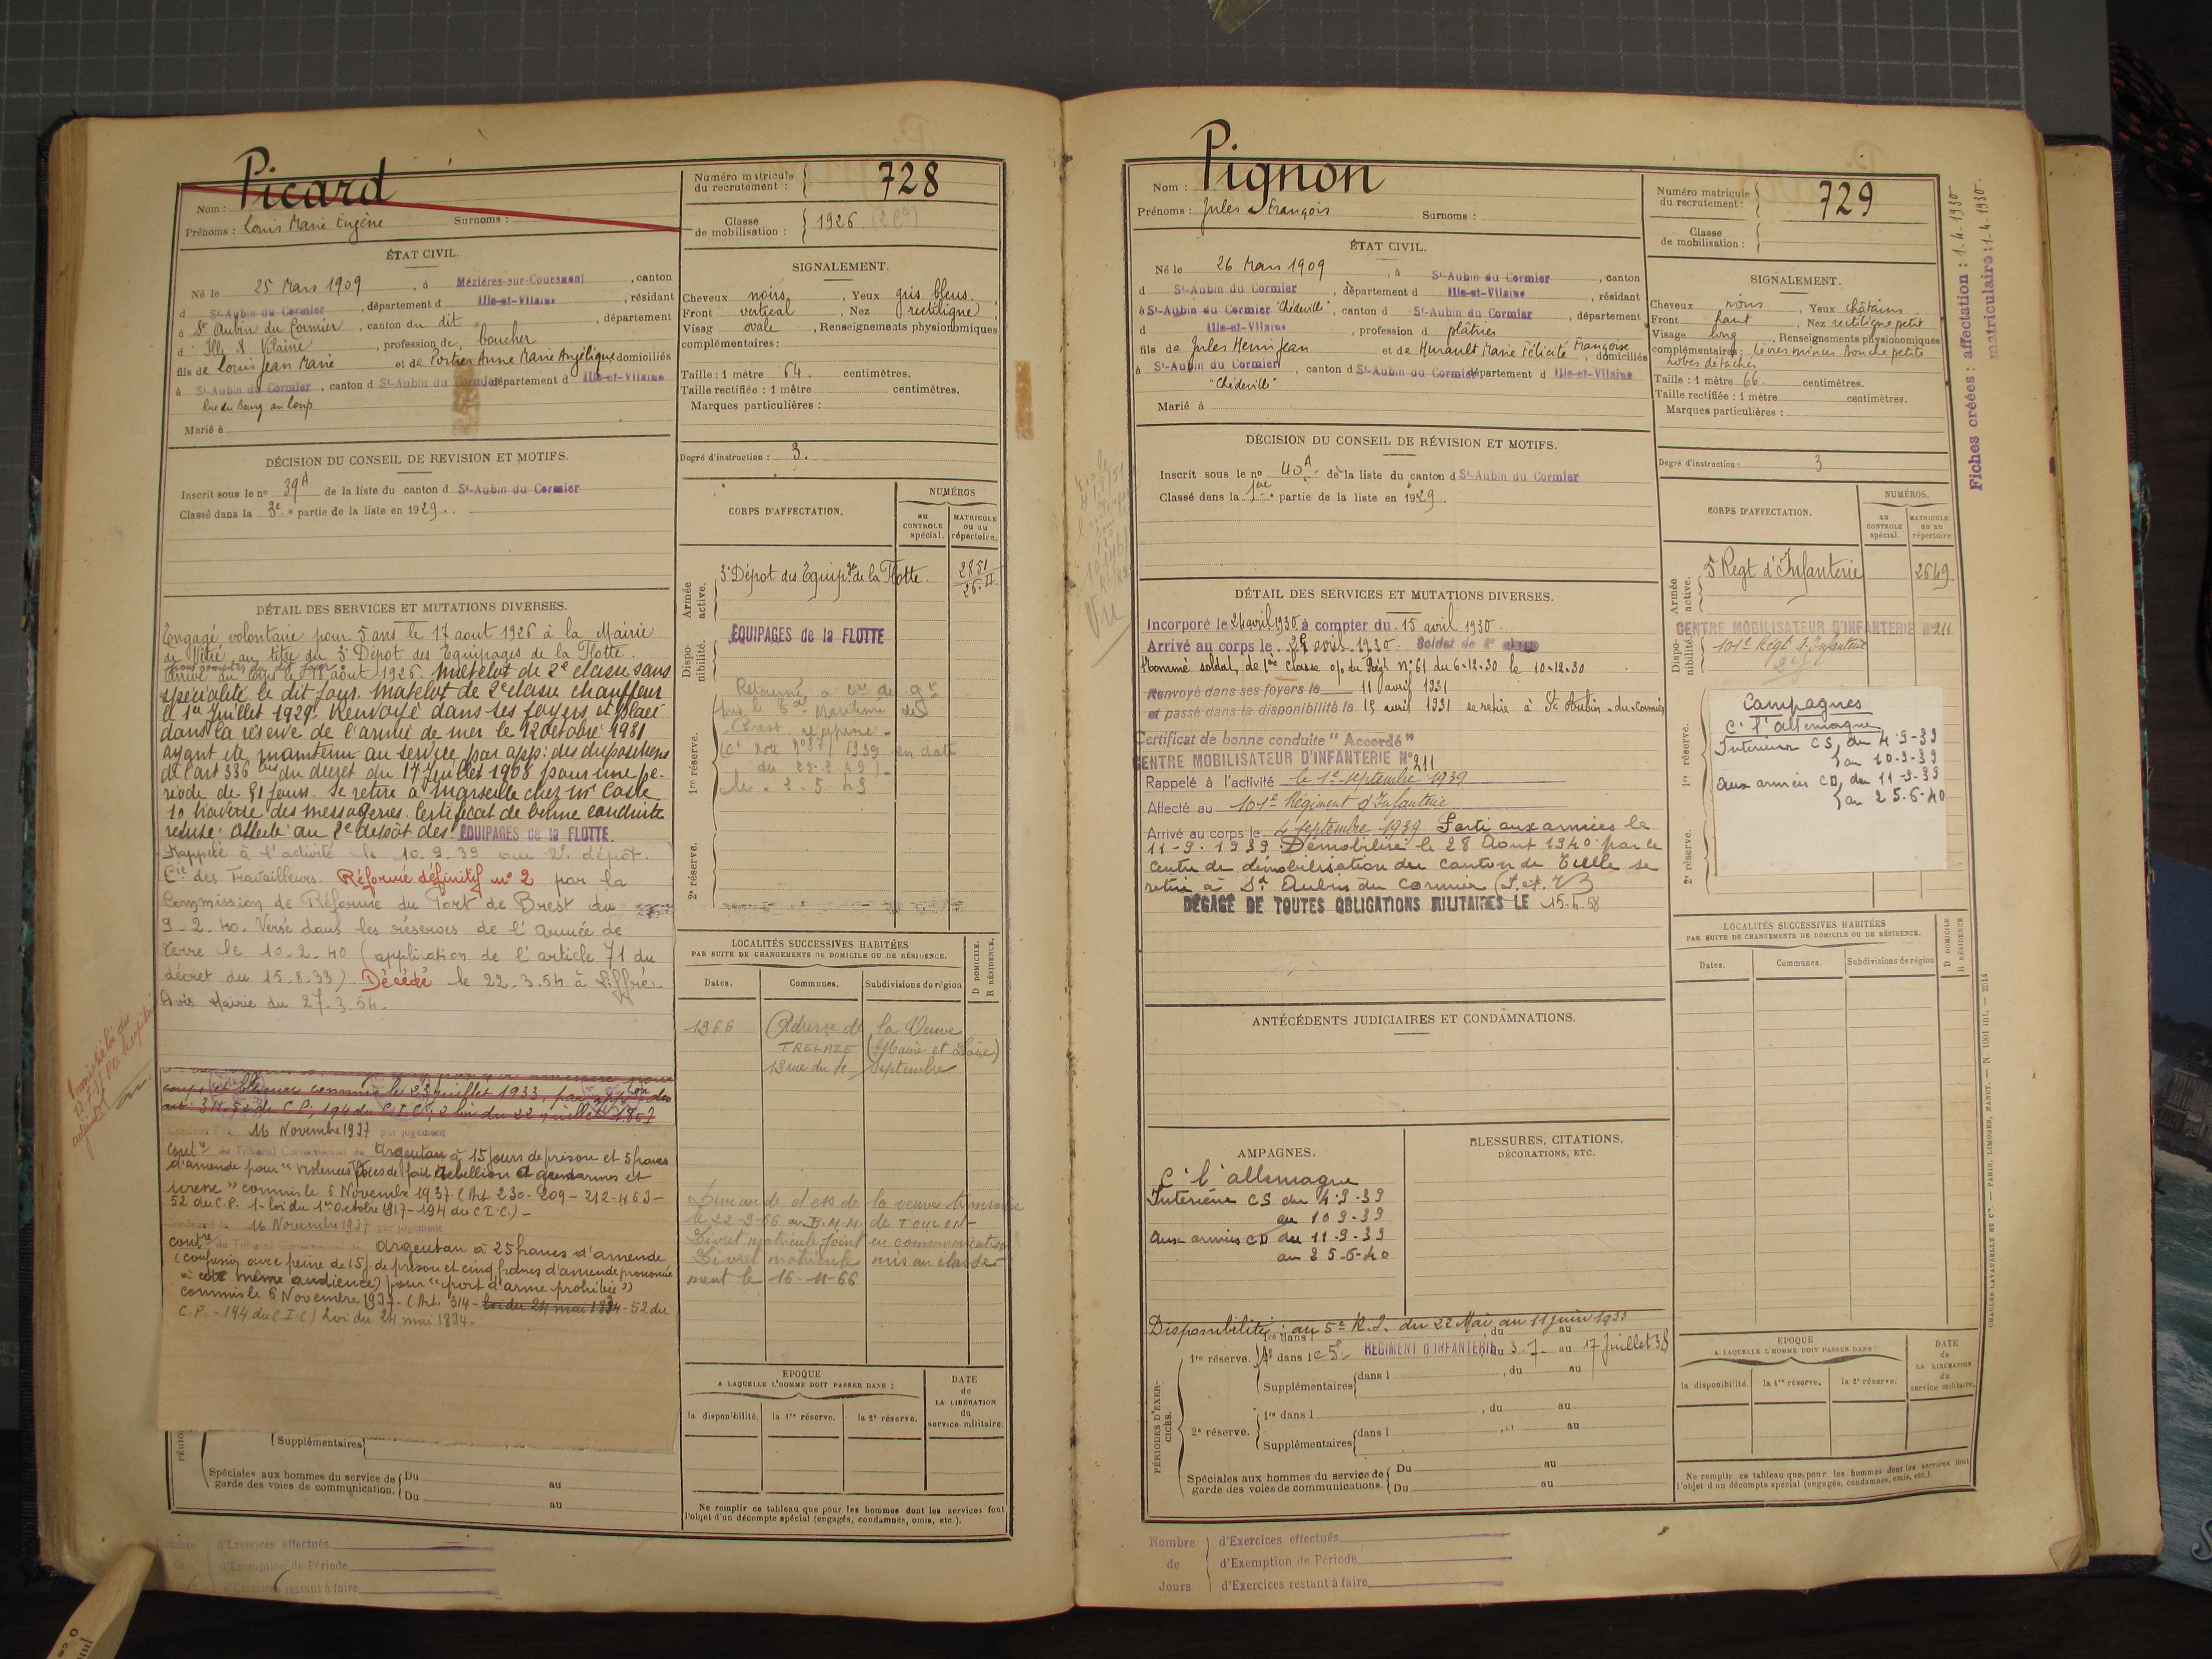 Picard
Nom :
Prénoms : Louis Marie Eugène Surnoms :
Numéro matricule du recrutement : 728
Classe de mobilisation : 1926
ÉTAT CIVIL.
Né le 25 Mars 1909, à Mézières-sur-Couesnon, canton
d St-Aubin du Cormier, département d Ille-et-Vilaine, résidant
à St Aubin du Cormier, canton du dit, département
d Ille & Vilaine, profession de boucher
fils de Louis Jean Marie et de Portier Anne Marie Angélique domiciliés
à St-Aubin du Cormier, canton d St-Aubin du Cormier département d Ille-et-Vilaine
Rue du Bourg au loup
Marié à
SIGNALEMENT.
Cheveux noirs, Yeux gris bleus.
Front vertical, Nez rectiligne
Visag ovale, Renseignements physionomiques
complémentaires :
Taille : 1 mètre 64. centimètres.
Taille rectifiée : 1 mètre centimètres.
Marques particulières :
Degré d'instruction : 3.
DÉCISION DU CONSEIL DE REVISION ET MOTIFS.
Inscrit sous le no 39A de la liste du canton d St-Aubin du Cormier
Classé dans la 3e partie de la liste en 1929.
DÉTAIL DES SERVICES ET MUTATIONS DIVERSES.
Engagé volontaire pour 5 ans le 17 aout 1926 à la Mairie
de Vitré au titre du 3e Dépot des Equipages de la Flotte.
pour compter du dit jour
arrivé au corps le 18 août 1926. Matelot de 2e classe sans
spécialité le dit jour. Matelot de 2e classe chauffeur
le 1er Juillet 1929. Renvoyé dans ses foyers et placé
dans la réserve de l'armée de mer le 12 octobre 1931
ayant été maintenu au service par app. des dispositions
de l'art 336 bis du décret du 17 Juillet 1908 pour une pé-
riode de 91 jours. Se retire à Marseille chez Mr Caste
10 traverse des messageries. Certificat de bonne conduite
refusé. Affecté au 2e dépôt des EQUIPAGES de la FLOTTE.
Rappelé à l'activité le 10.9.39 au 2e dépôt.
Cie des Travailleurs. Réformé définitif no 2 par la
Commission de Réforme du Port de Brest du
9-2-40. Versé dans les réserves de l'armée de
terre le 10-2-40 (application de l'article 71 du
décret du 15.8.33). Décédé le 22.3.54 à Liffré.
Avis Mairie du 27.3.54.
coups et blessures commis le 23 juillet 1933, par app. des
art. 311, 52 du C.P., 194 du C.I.C., 2 loi du 22 juillet 1867
Condamné le 16 Novembre 1937 par jugement
contre du Tribunal Correctionnel de Argentan à 15 jours de prison et 5 francs
d'amende pour "violences voies de fait rebellion à gendarmes et
ivresse" commis le 6 Novembre 1937 (Art. 230-209-212-463-
52 du C.P. 1- loi du 1er Octobre 1917-194 du C.I.C.)-
Condamné le 16 Novembre 1937 par jugement
contre du Tribunal Correctionnel de Argentan à 25 francs d'amende
(confusion avec peine de 15 j. de prison et cinq francs d'amende prononcée
à cette même audience) pour "port d'arme prohibée"
commis le 6 Novembre 1937- (Art. 314- loi du 24 mai 1834- 52 du
C.P. - 194 du C.I.C) Loi du 24 mai 1834.-
Supplémentaires
Spéciales aux hommes du service de garde des voies de communication. Du au
Du au
Nombre de d'Exercices effectués
d'Exemption de Période
d'Exercices restant à faire
CORPS D'AFFECTATION.
NUMÉROS
au CONTROLE spécial.
MATRICULE ou au répertoire.
Armée active.
3e Dépot des Equip. de la Flotte. 2851 26-II
Disponibilité.
EQUIPAGES de la FLOTTE
1re réserve.
2e réserve.
LOCALITÉS SUCCESSIVES HABITÉES
PAR SUITE DE CHANGEMENTS DE DOMICILE OU DE RÉSIDENCE.
Dates. Communes. Subdivisions de région D DOMICILE. R RÉSIDENCE.
1966 (Adresse de la Veuve
TRELAZE (Maine et Loire)
13 rue du 4 Septembre
le 22-9-66 au B.M.M. de TOULON-
Livret matricule joint en communication
Livret matricule mis au classe-
ment le 16-11-66
EPOQUE
A LAQUELLE L'HOMME DOIT PASSER DANS :
la disponibilité. la 1re réserve. la 2e réserve.
DATE de LA LIBÉRATION du service militaire.
Ne remplir ce tableau que pour les hommes dont les services font
l'objet d'un décompte spécial (engagés, condamnés, omis, etc.).
Pignon
Nom :
Prénoms : Jules François Surnoms :
Numéro matricule du recrutement : 729
Classe de mobilisation :
ÉTAT CIVIL.
Né le 26 Mars 1909, à St-Aubin du Cormier, canton
d St-Aubin du Cormier, département d Ille-et-Vilaine, résidant
à St-Aubin du Cormier "Chédeville", canton d St-Aubin du Cormier, département
d Ille-et-Vilaine, profession d plâtrier
fils de Jules Henri Jean et de Hurault Marie Félicité Françoise, domiciliés
à St-Aubin du Cormier, canton d St-Aubin du Cormier département d Ille-et-Vilaine
"Chédeville"
Marié à
SIGNALEMENT.
Cheveux noirs, Yeux châtains
Front haut, Nez rectiligne petit
Visage long, Renseignements physionomiques
complémentaires : lèvres minces bouche petite
lobes détachés
Taille : 1 mètre 66. centimètres.
Taille rectifiée : 1 mètre centimètres.
Marques particulières :
Degré d'instruction : 3
Fiches créées : affectation : 1-4-1930
matriculaire : 1-4-1930.
DÉCISION DU CONSEIL DE RÉVISION ET MOTIFS.
Inscrit sous le no 40A de la liste du canton d St-Aubin du Cormier
Classé dans la 1ere partie de la liste en 1929.
Vu
DÉTAIL DES SERVICES ET MUTATIONS DIVERSES.
Incorporé le 24 avril 1930 à compter du 15 avril 1930.
Arrivé au corps le 24 avril 1930. Soldat de 2e classe
Nommé soldat de 1ère classe o/ du Régt no 61 du 6-12-30 le 10-12-30
Renvoyé dans ses foyers le 11 avril 1931
et passé dans la disponibilité le 15 avril 1931 se retire à St Aubin-du-Cormier
Certificat de bonne conduite "Accordé"
CENTRE MOBILISATEUR D'INFANTERIE No 211
Rappelé à l'activité le 1er septembre 1939
Affecté au 101e Régiment d'Infanterie
Arrivé au corps le 4 septembre 1939 Parti aux armées le
11-9-1939. Démobilisé le 28 Août 1940 par le
Centre de démobilisation du canton de Tulle se
retire à St Aubin du Cormier
DÉGAGÉ DE TOUTES OBLIGATIONS MILITAIRES LE 15-6-58
ANTÉCÉDENTS JUDICIAIRES ET CONDAMNATIONS.
AMPAGNES.
C' l'allemagne
Intérieur CS du 4.9.39
au 10.9.39
Aux armées CD du 11.9.39
au 25-6-40
BLESSURES, CITATIONS,
DÉCORATIONS, ETC.
PÉRIODES D'EXERCICES.
Disponibilité : au 5e R.I. du 22 Mai au 11 juin 1933
1re réserve. 1re dans l du au
dans le 5e REGIMENT D'INFANTERIE du 3-7 au 17 Juillet 38
Supplémentaires dans l, du au
2e réserve. 1re dans l, du au
Supplémentaires dans l, du au
Spéciales aux hommes du service de garde des voies de communications. Du au
Du au
Nombre de Jours d'Exercices effectués
d'Exemption de Période
d'Exercices restant à faire
CORPS D'AFFECTATION.
NUMÉROS.
au CONTROLE spécial.
MATRICULE ou au répertoire
Armée active.
5e Régt d'Infanterie 2649
Disponibilité.
CENTRE MOBILISATEUR D'INFANTERIE No 211
101e Régt d'Infanterie
1re réserve.
Campagnes
C' l'allemagne
Intérieur CS, du 4-9-39
au 10-9-39
Aux armées CD, du 11-9-39
au 25-6-40
2e réserve.
LOCALITÉS SUCCESSIVES HABITÉES
PAR SUITE DE CHANGEMENTS DE DOMICILE OU DE RÉSIDENCE.
Dates. Communes. Subdivisions de région D DOMICILE R RÉSIDENCE
EPOQUE
A LAQUELLE L'HOMME DOIT PASSER DANS :
la disponibilité. la 1re réserve. la 2e réserve.
DATE de LA LIBÉRATION du service militaire.
Ne remplir ce tableau que pour les hommes dont les services font
l'objet d'un décompte spécial (engagés, condamnés, omis, etc.).
CHARLES-LAVAUZELLE ET Cie. — PARIS, LIMOGES, NANCY. — N 1001 int. — 2514